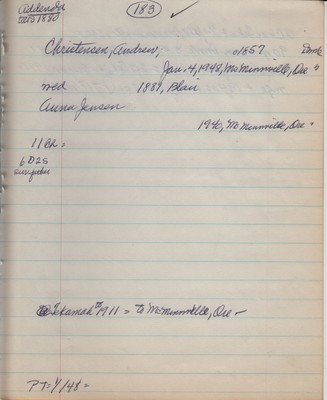 Addenda
183 ✓
1880
Christensen, Andrew c1857 Denk
Jan. 4, 1948, McMinnville, Ore "
wed 1881, Blair
Anna Jensen
1940, McMinnville, Ore "
11 ch =
6 D 2 S
survive
@ Tekamah to 1911 = to McMinnville, Ore -
PT=1/48=